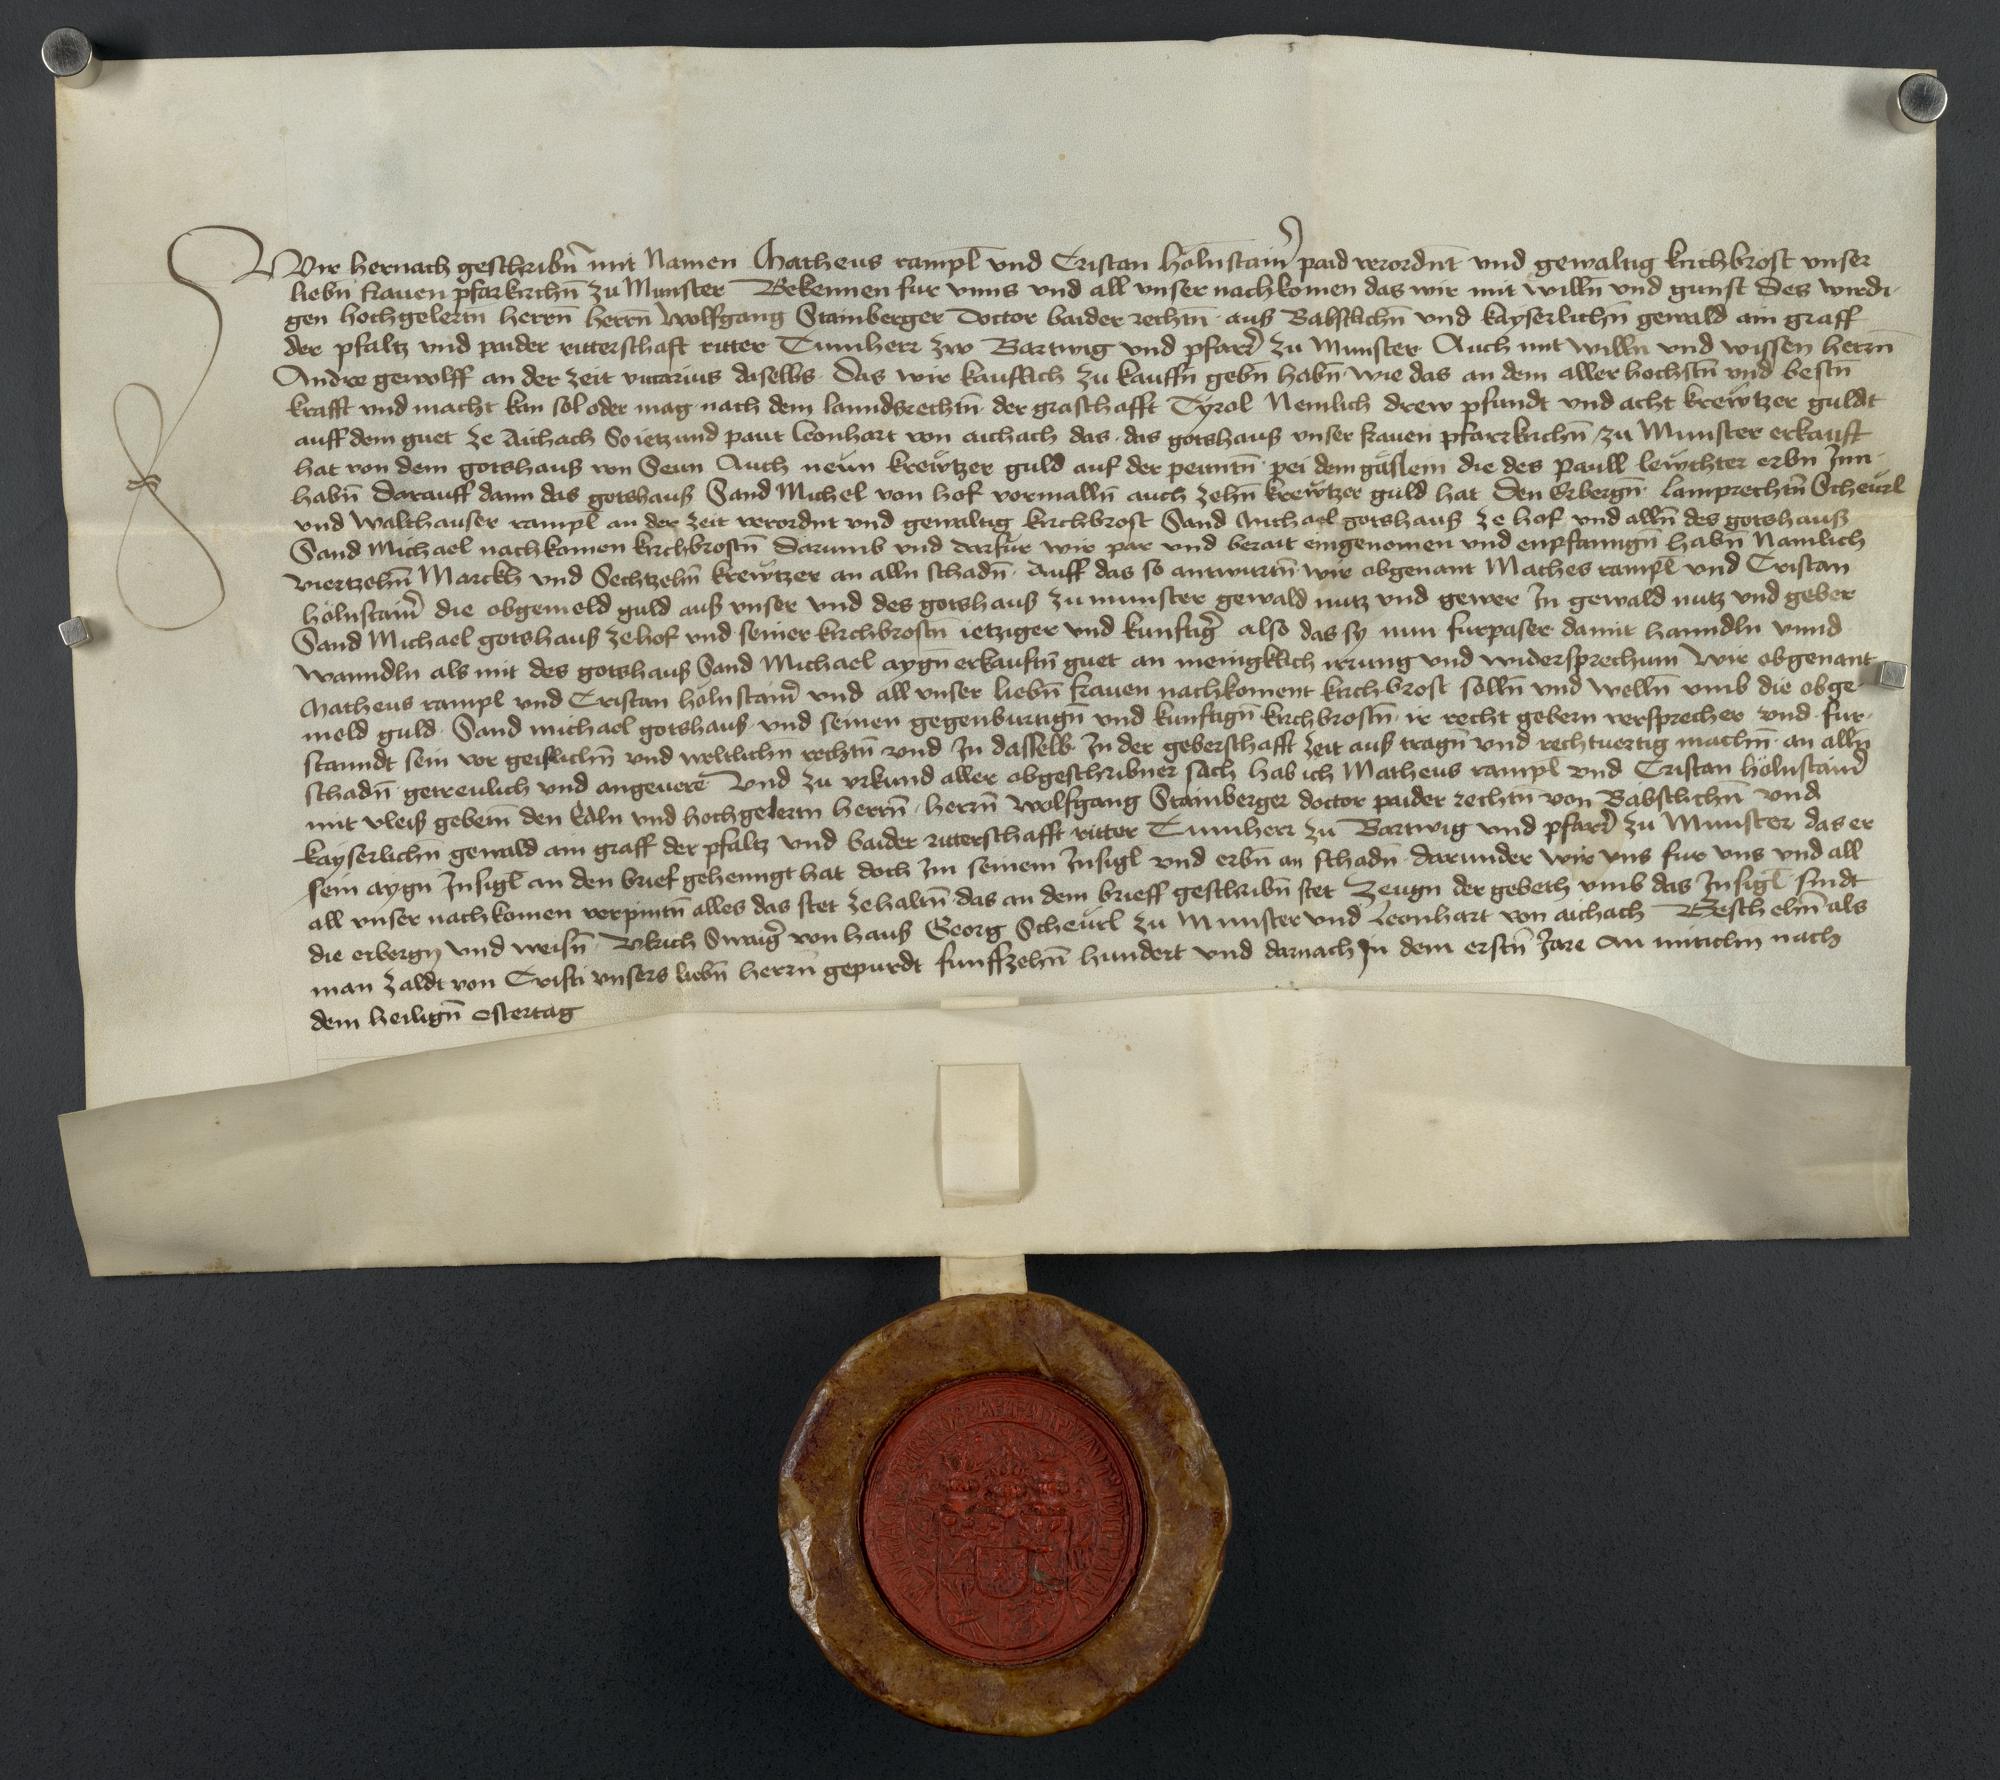 Wir hernach geschribn̄ mit Namen Matheus rampl und Cristan hölnstain̄ paid verordnt und gewaltig kirchbrost unser
liebn̄ frauen pfarkirchn̄ zu Munster Bekennen fur vnns vnd all vnser nachkomen das wir mit willn̄ vnd gunst des wirdi
gen hochgelertn̄ herrn̄ herrn̄ Wolfgang Stainberger Doctor baider rechtn̄ auß Babstlichn̄ vnd kayserlichn̄ gewald ain graff
der pfaltz vnd paider ritterschaft ritter Tumherr zw Bartwig vnd pfarr̄ zu Munster Auch mit willn̄ vnd wissen herrn̄
Andre gewolff an der zeit vicarius daselbs das wir kauflich zu kauffn̄ gebn̄ habn̄ wie das an dem aller hochstn̄ vnd bestn̄
krafft vnd macht kan sol oder mag nach dem lanndsrechtn̄ der graschafft Tyrol Nemlich drew pfundt vnd acht krewtzer guldt
auff dem guet ze Aichach So ietzund paut leonhart von aichach das das gotshauß vnser frauen pfarrkirchn̄ zu Munster erkauft
hat von dem gotshauß von Seun Auch neun krewtzer guld auf der peuntn̄ pei dem gäslein die des Paull lewchter erbn̄ Inn
habn̄ darauff dann das gotshauß Sand Michel von hof vormalln̄ auch zehn̄ krewtzer guld hat Den Erbergn̄ lamprechtn̄ Scheurl
vnd walthauser rampl an der zeit verordnt vnd gewaltig kirchbrost Sand Michael gotshauß ze hof vnd alln̄ des gotshauß
Sand Michael nachkomen kirchbrostn̄ darumb vnd darfur wir par vnd berait eingenomen vnd enpfanngn̄ habn̄ Namlich
viertzehn̄ Marckh vnd Sechtzehn̄ krewtzer an alln̄ schadn̄ Auff das so antwurtn̄ wir obgenant Mathes rampl vnd Cristan
hölnstain̄ die obgemeld guld auß vnser vnd des gotshauß zu munster gewald nutz vnd gewer In gewald nutz vnd geber
Sand Michael gotshauß ze hof vnd seiner kirchbrostn̄ ietziger vnd kunftigr̄ also das sy nun furpaser damit hanndln vnnd
wanndln als mit des gotshauß Sand Michael aygn̄ erkauftn̄ guet an meingklich irrung vnd widersprechum Wir obgenant
Matheus rampl vnd Cristan hölnstain̄ vnd all vnser liebn̄ frauen nachkoment kirchbrost solln̄ vnd welln̄ vmb die obge
meld guld Sand michael gotshauß vnd seinen gegenburtign̄ vnd kunftign̄ kirchbrostn̄ ir recht gebern versprecher vnd fur
stanndt sein vor geistlichn̄ vnd weltlichn̄ rechtn̄ vnd In dasselb In der geberschafft zeit auß tragn̄ vnd rechtuertig machn̄ an alln̄
schadn̄ getreulich vnd angeuere Vnd zu vrkund aller obgeschribner sach hab ich Matheus rampl vnd Cristan hölnstain̄
mit vleiß gebetn̄ den Edln vnd hochgelertn herrn̄ herrn̄ Wolfgang Stainberger doctor paider rechtn̄ von Babstlichn̄ vnd
kayserlichn̄ gewald ain graff der pfaltz vnd baider ritterschafft ritter Tumherr zu Bartwig vnd pfarr̄ zu Munster das er
sein aygn Insigl an den brief gehenngt hat doch Im seinem Insigl vnd erbn̄ an schadn̄ darunder wir vns fur vns vnd all
all vnser nachkomen verpintn̄ alles das stet ze haltn̄ das an dem brieff geschribn̄ stet Zeugn der gebeth vmb das Insigl sindt
die erbergn vnd weisn̄ Vlrich Swaigr̄ von hauß Georg Scheurl zu Munster vnd Leonhart von aichach Beschehn̄ als
man zaldt von Cristi vnsers liebn̄ herrn̄ gepurdt funffzehn̄ hundert vnd darnach In dem erstn̄ Jare An mittichn nach
dem heilign̄ ostertag